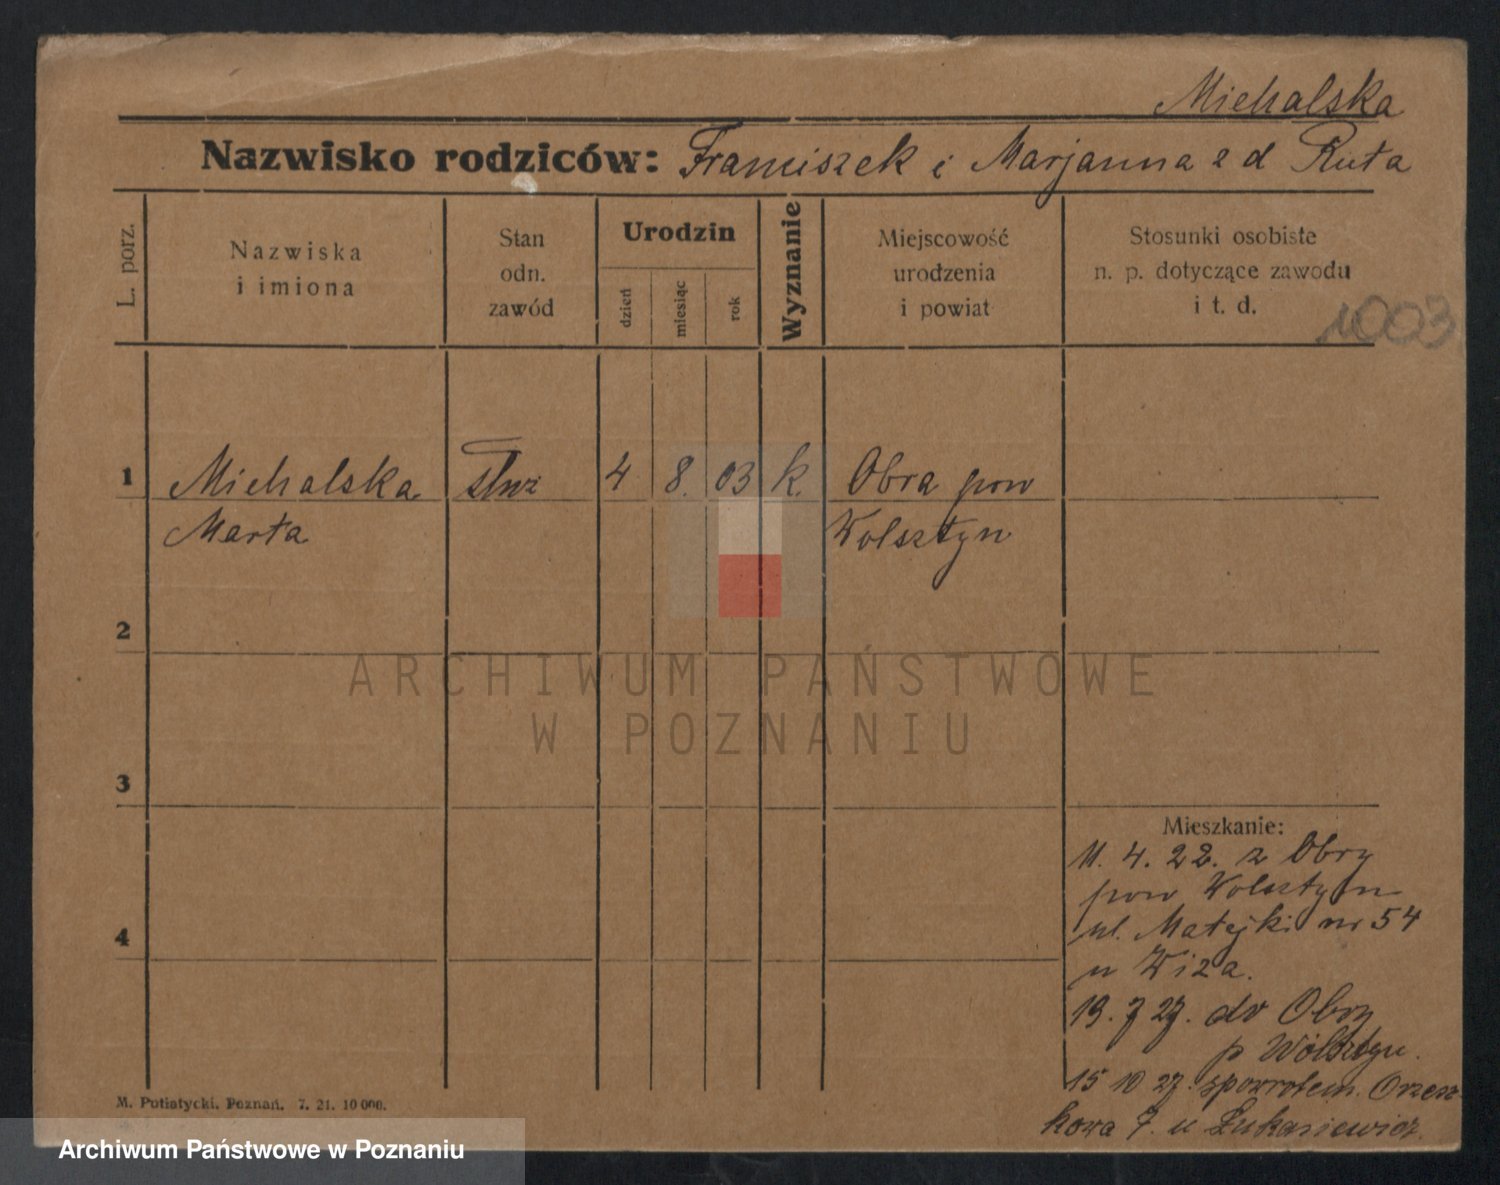 Michalska
Nazwisko rodziców: Franciszek i Marjanna z d Ruta
L. porz.
Nazwiska
i imiona
Stan
odn.
zawód
Urodzin
dzień
miesiąc
rok
Wyznanie
Miejscowość
urodzenia
i powiat
Stosunki osobiste
n. p. dotyczące zawodu
i t. d.
1003
1 Michalska służ 4 8. 03 k. Obra pow
Marta Wolsztyn
2
3
4
Mieszkanie:
11. 4. 22. z Obry
pow Wolsztyn
ul. Matejki nr 54
u Wiza.
19. 7 27. do Obry
p Wolsztyn.
15 10 27. spowrotem. Orzesz
kowa 7. u Łukasiewicz.
M. Putiatycki, Poznań. 7. 21. 10 000.
ARCHIWUM PAŃSTWOWE
W POZNANIU
Archiwum Państwowe w Poznaniu